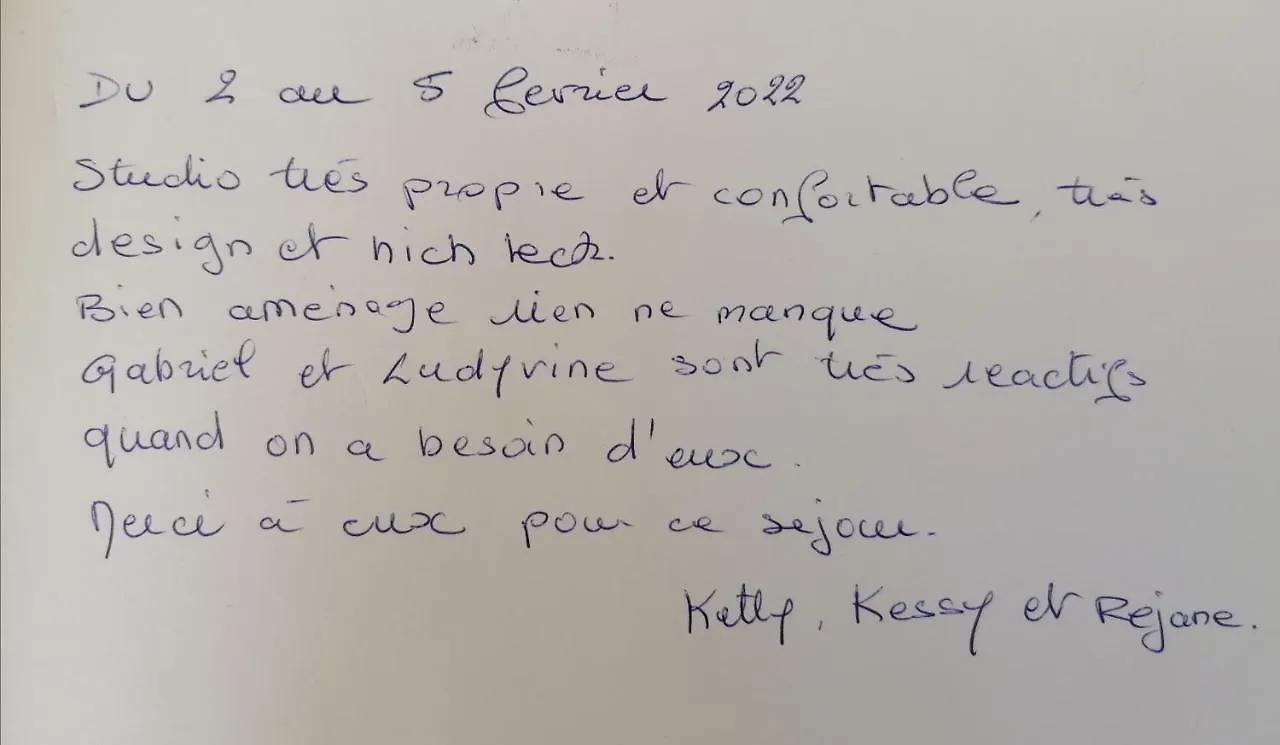 DU 2 au 5 fevrier 2022
Studio très propre et confortable, très
design et hich teck.
Bien aménage rien ne manque
Gabriel et Ludyvine sont très reactifs
quand on a besoin d'eux.
Merci à eux pour ce sejour.
Ketty, Kessy et Rejane.